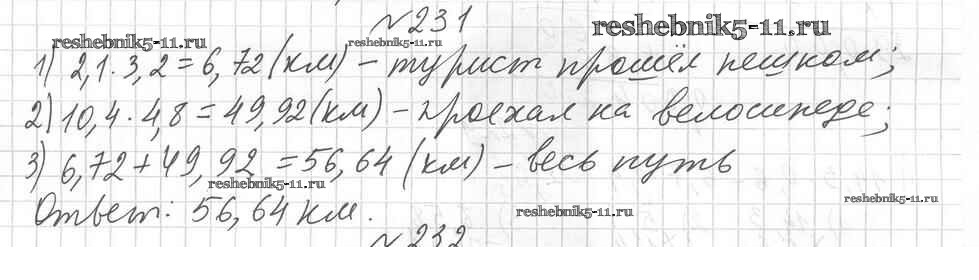 №231
reshebnik5-11.ru
reshebnik5-11.ru
reshebnik5-11.ru
1) 2,1·3,2=6,72(км) – турист прошёл пешком;
2) 10,4·4,8=49,92(км) – проехал на велосипеде;
3) 6,72+49,92=56,64(км) – весь путь
reshebnik5-11.ru
reshebnik5-11.ru
reshebnik5-11.ru
Ответ: 56,64 км.
№232